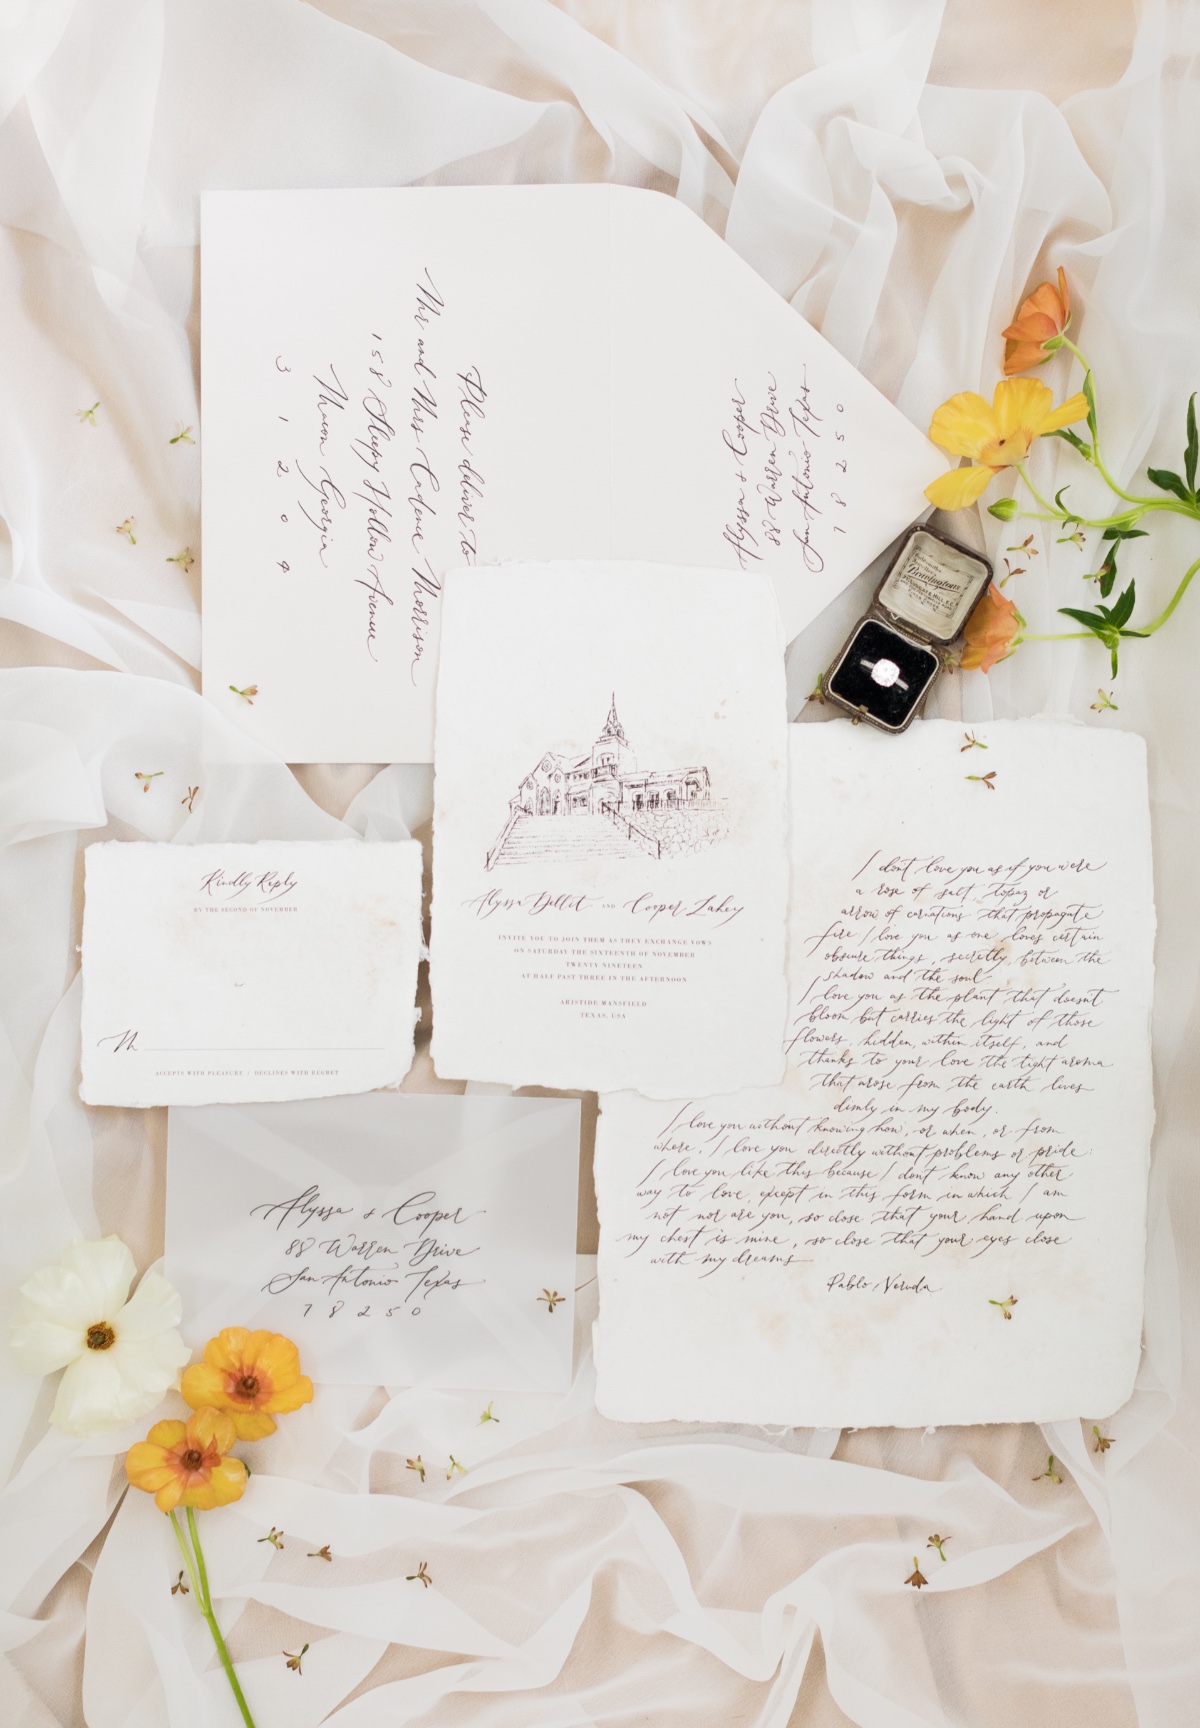 Please deliver to
Mr and Mrs Cadence Morrison
158 Sleepy Hollow Avenue
Macon Georgia
31209
Alyssa + Cooper
88 Warren Drive
San Antonio Texas
78250
Alyssa Dellit AND Cooper Lahey
INVITE YOU TO JOIN THEM AS THEY EXCHANGE VOWS
ON SATURDAY THE SIXTEENTH OF NOVEMBER
TWENTY NINETEEN
AT HALF PAST THREE IN THE AFTERNOON
ARISTIDE MANSFIELD
TEXAS, USA
Kindly Reply
BY THE SECOND OF NOVEMBER
M
ACCEPTS WITH PLEASURE / DECLINES WITH REGRET
Alyssa + Cooper
88 Warren Drive
San Antonio Texas
78250
I don't love you as if you were
a rose of salt, topaz or
arrow of carnations that propagate
fire: I love you as one loves certain
obscure things, secretly, between the
shadow and the soul
I love you as the plant that doesn't
bloom but carries the light of those
flowers, hidden, within itself, and
thanks to your love the tight aroma
that arose from the earth lives
dimly in my body.
I love you without knowing how, or when, or from
where, I love you directly without problems or pride:
I love you like this because I don't know any other
way to love, except in this form in which I am
not nor are you, so close that your hand upon
my chest is mine, so close that your eyes close
with my dreams
Pablo Neruda
Bravingtons